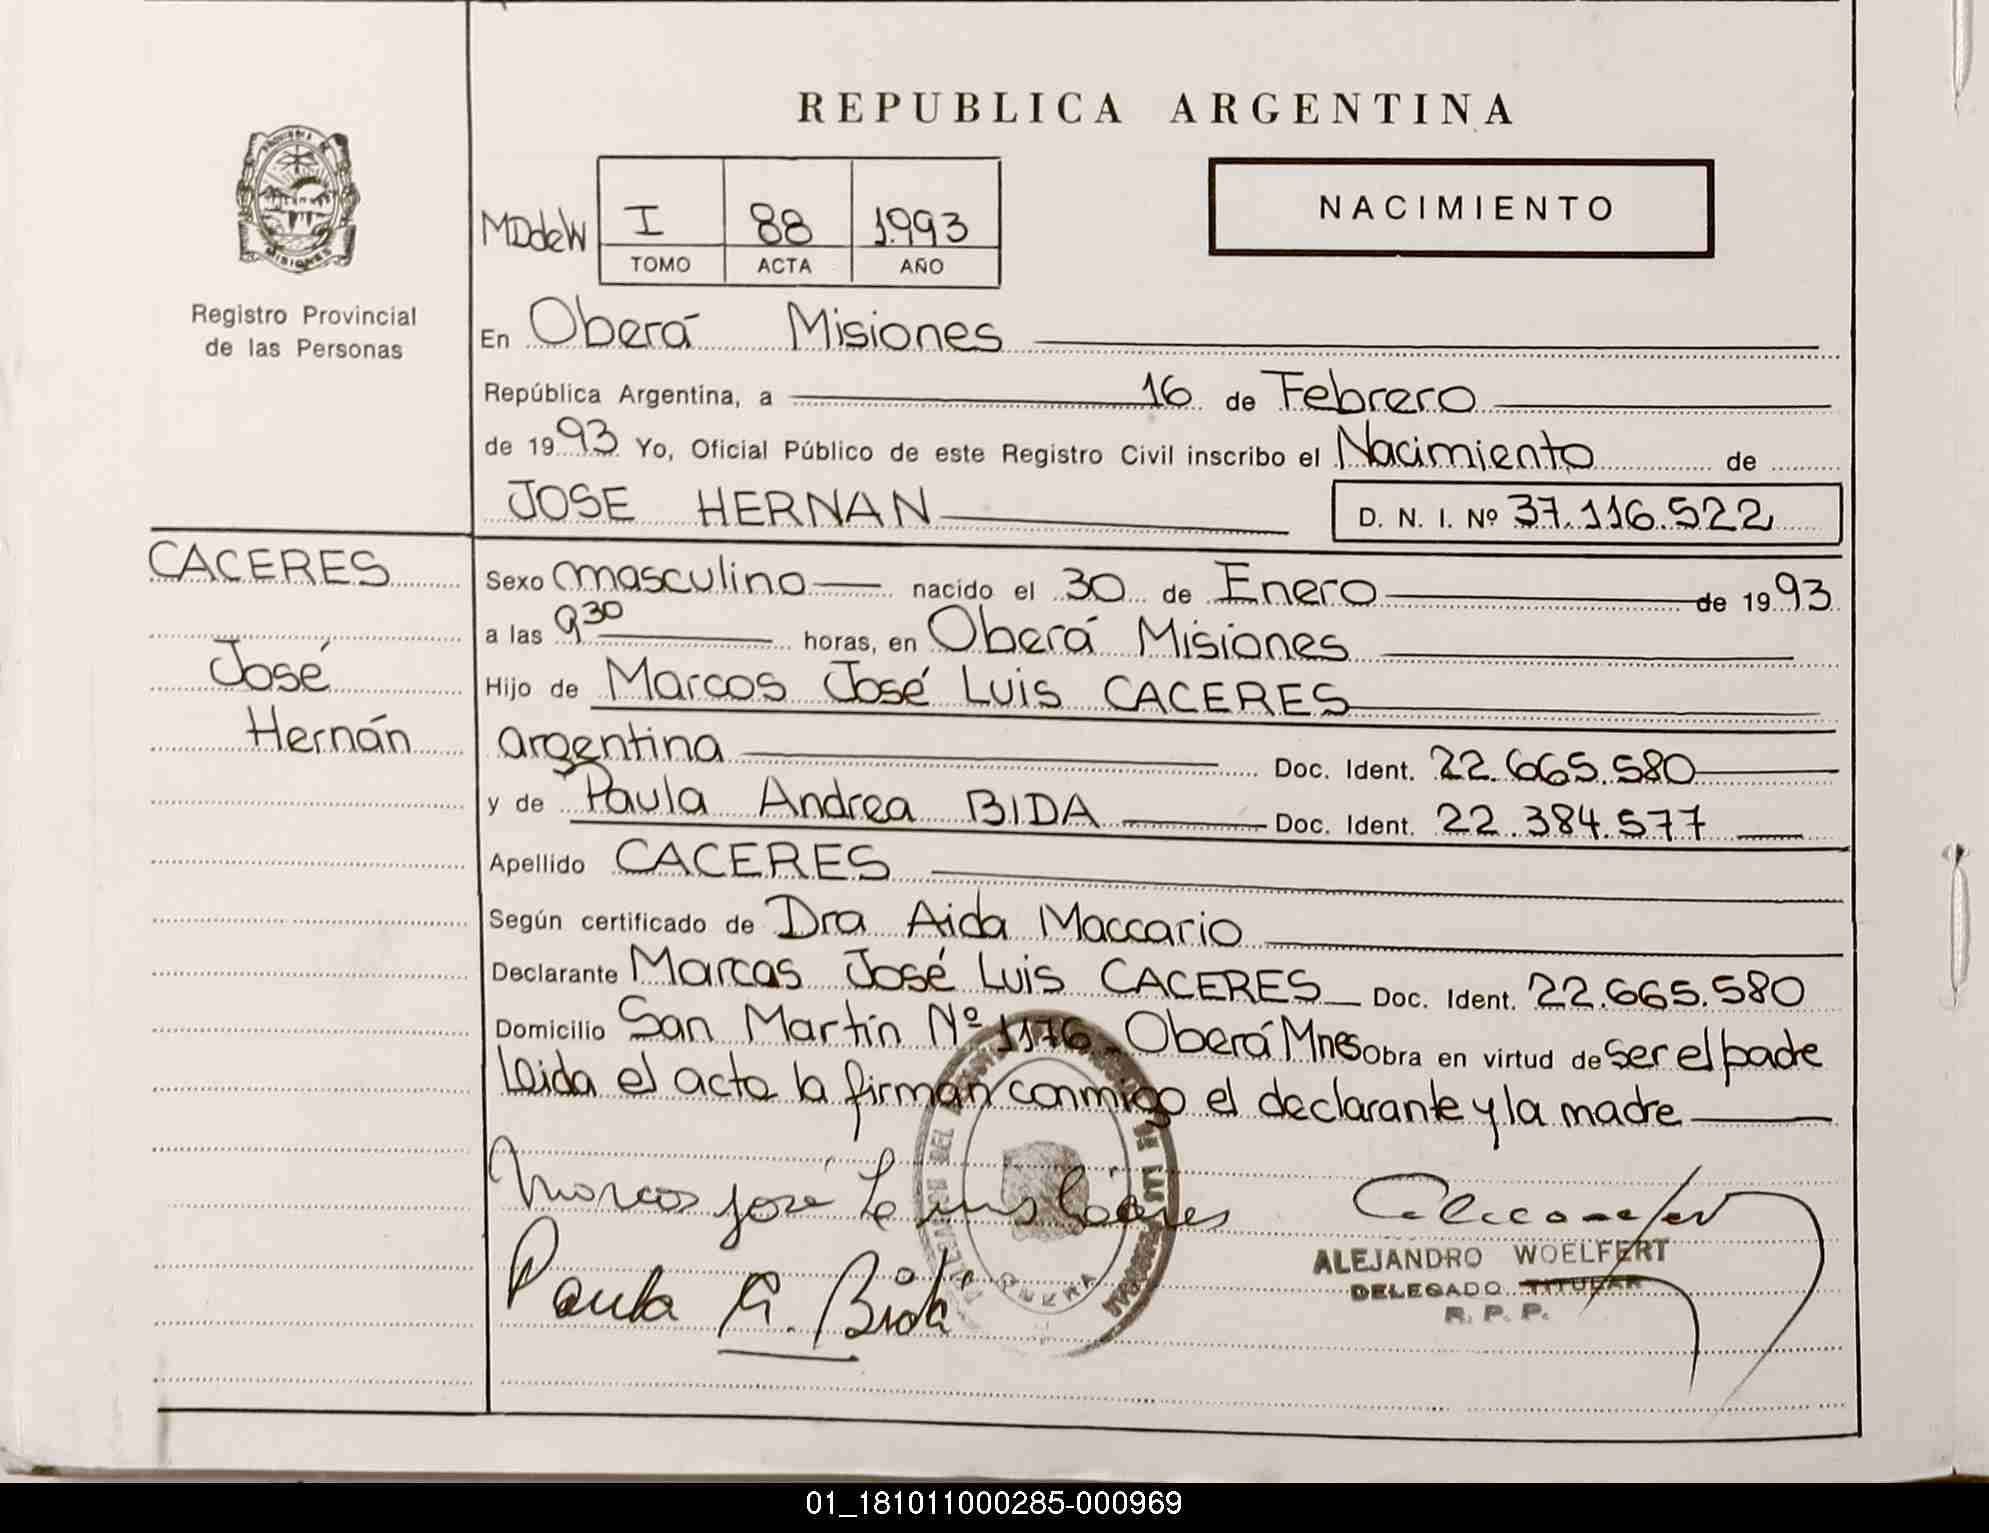 REPUBLICA ARGENTINA
NACIMIENTO
MDdeW I 88 1.993
TOMO ACTA AÑO
MISIONES
Registro Provincial
de las Personas
En Oberá Misiones
República Argentina, a 16 de Febrero
de 1993 Yo, Oficial Público de este Registro Civil inscribo el Nacimiento de
JOSE HERNAN D. N. I. Nº 37.116.522
CACERES
José
Hernán
Sexo masculino nacido el 30 de Enero de 1993
a las 9 30 horas, en Oberá Misiones
Hijo de Marcos José Luis CACERES
argentina Doc. Ident. 22.665.580
y de Paula Andrea BIDA Doc. Ident. 22.384.577
Apellido CACERES
Según certificado de Dra Aida Maccario
Declarante Marcos José Luis CACERES Doc. Ident. 22.665.580
Domicilio San Martín Nº 1176 Oberá Mnes Obra en virtud de ser el padre
Leida el acta la firman conmigo el declarante y la madre
Marcos José Luis Cáceres
Paula A. Bida
ALEJANDRO WOELFERT
DELEGADO TITULAR
R. P. P.
01_181011000285-000969